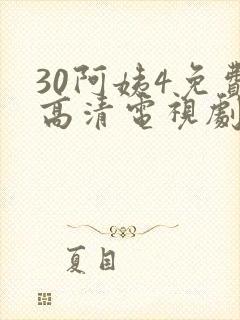 30阿姨4免費
高清電視劇
夏目